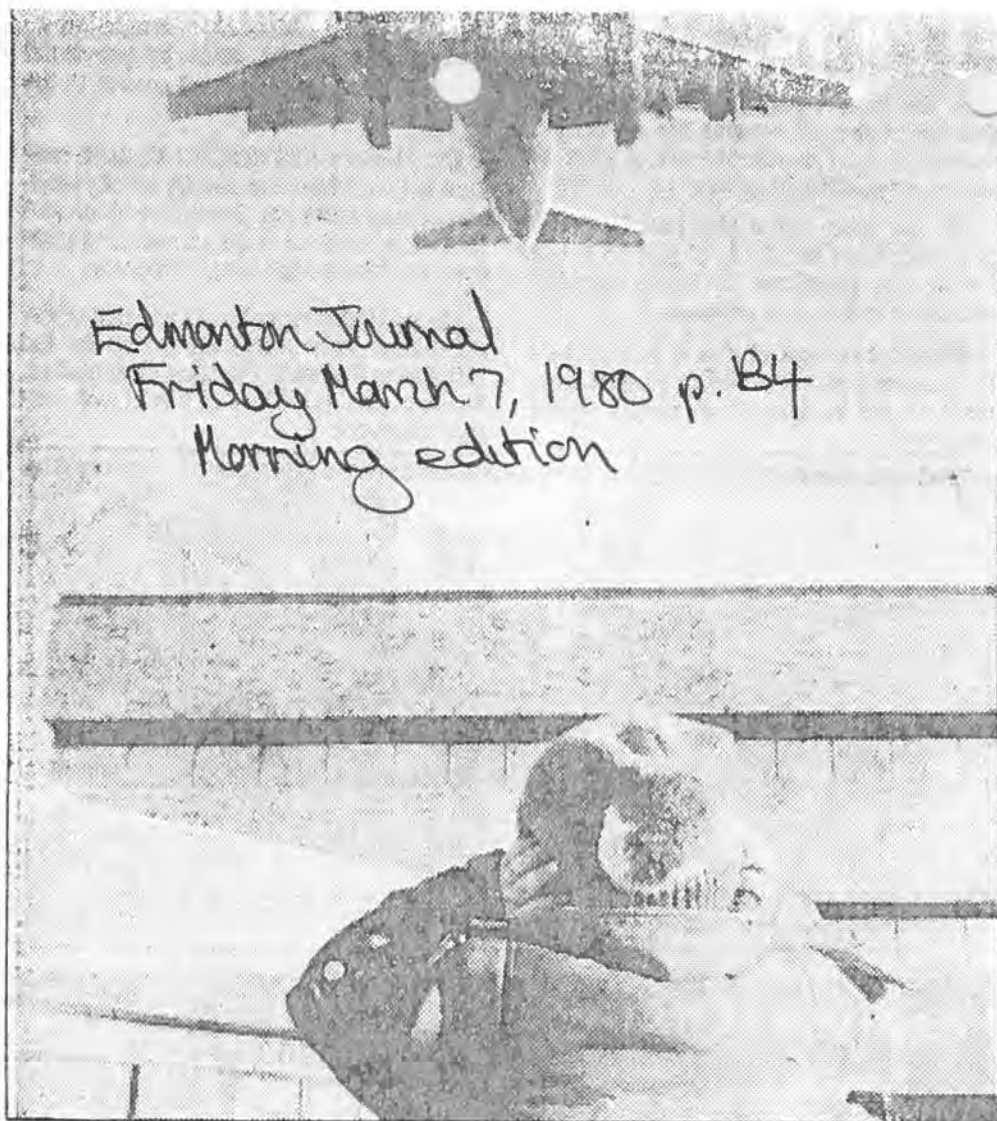 Edmonton Journal
Friday March 7, 1980 p. B4
Morning edition